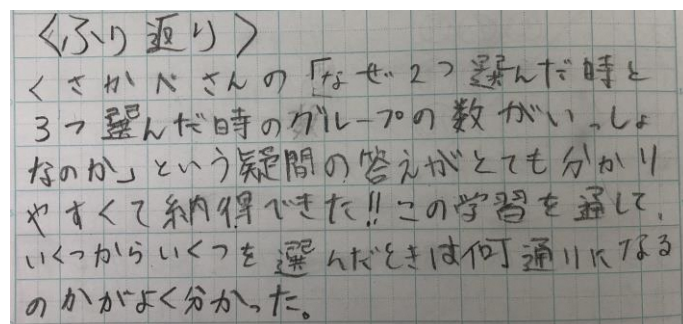 〈ふり返り〉
くさかべさんの「なぜ2つ選んだ時と
3つ選んだ時のグループの数がいっしょ
なのか」という疑問の答えがとても分かり
やすくて納得できた!!この学習を通して、
いくつからいくつを選んだときは何通りになる
のかがよく分かった。